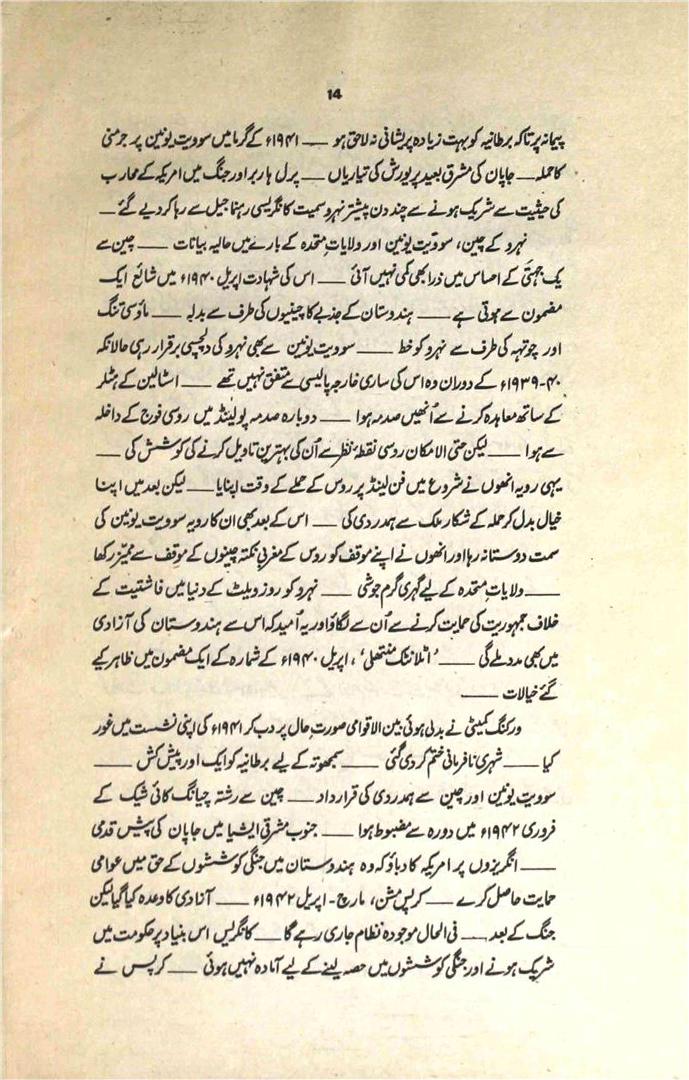 14
پیمانہ پر تاکہ برطانیہ کو بہت زیادہ پریشانی نہ لاحق ہو —— ۱۹۴۱ء کے گرما میں سوویت یونین پر جرمنی
کا حملہ —— جاپان کی مشرق بعید پر یورش کی تیاریاں —— پرل ہاربر اور جنگ میں امریکہ کے محارب
کی حیثیت سے شریک ہونے سے چند دن پیشتر نہرو سمیت کانگریسی رہنما جیل سے رہا کر دیے گئے ——
نہرو کے چین، سوویت یونین اور ولایات متحدہ کے بارے میں حالیہ بیانات —— چین سے
یک جہتی کے احساس میں ذرا بھی کمی نہیں آئی —— اس کی شہادت اپریل ۱۹۴۰ء میں شائع ایک
مضمون سے ہوتی ہے —— ہندوستان کے جذبے کا چینیوں کی طرف سے بدلہ —— ماؤسی تنگ
اور چوتہہ کی طرف سے نہرو کو خط —— سوویت یونین سے بھی نہرو کی دلچسپی برقرار رہی حالانکہ
۴۰-۱۹۳۹ء کے دوران وہ اس کی ساری خارجہ پالیسی سے متفق نہیں تھے —— اسٹالین کے ہٹلر
کے ساتھ معاہدہ کرنے سے اُنھیں صدمہ ہوا —— دوبارہ صدمہ پولینڈ میں روسی فوج کے داخلہ
سے ہوا —— لیکن حتی الامکان روسی نقطۂ نظر سے اُن کی بہترین تاویل کرنے کی کوشش کی ——
یہی رویہ انھوں نے شروع میں فن لینڈ پر روس کے حملے کے وقت اپنایا —— لیکن بعد میں اپنا
خیال بدل کر حملہ کے شکار ملک سے ہمدردی کی —— اس کے بعد بھی ان کا رویہ سوویت یونین کی
سمت دوستانہ رہا اور انھوں نے اپنے موقف کو روس کے مغربی نکتہ چینوں کے موقف سے ممیّز رکھا
—— ولایات متحدہ کے لیے گہری گرم جوشی —— نہرو کو روزویلٹ کے دنیا میں فاشتیت کے
خلاف جمہوریت کی حمایت کرنے سے اُن سے لگاؤ اور یہ اُمید کہ اس سے ہندوستان کی آزادی
میں بھی مدد ملے گی —— 'اٹلانٹک منتھلی'، اپریل ۱۹۴۰ء کے شمارہ کے ایک مضمون میں ظاہر کیے
گئے خیالات ——
ورکنگ کمیٹی نے بدلی ہوئی بین الاقوامی صورت حال پر دسمبر ۱۹۴۱ء کی اپنی نشست میں غور
کیا —— شہری نافرمانی ختم کر دی گئی —— سمجھوتہ کے لیے برطانیہ کو ایک اور پیش کش ——
سوویت یونین اور چین سے ہمدردی کی قرارداد —— چین سے رشتہ چیانگ کائی شیک کے
فروری ۱۹۴۲ء میں دورہ سے مضبوط ہوا —— جنوب مشرقی ایشیا میں جاپان کی پیش قدمی
—— انگریزوں پر امریکہ کا دباؤ کہ وہ ہندوستان میں جنگی کوششوں کے حق میں عوامی
حمایت حاصل کرے —— کرپس مشن، مارچ - اپریل ۱۹۴۲ء —— آزادی کا وعدہ کیا گیا لیکن
جنگ کے بعد —— فی الحال موجودہ نظام جاری رہے گا —— کانگریس اس بنیاد پر حکومت میں
شریک ہونے اور جنگی کوششوں میں حصہ لینے کے لیے آمادہ نہیں ہوئی —— کرپس نے